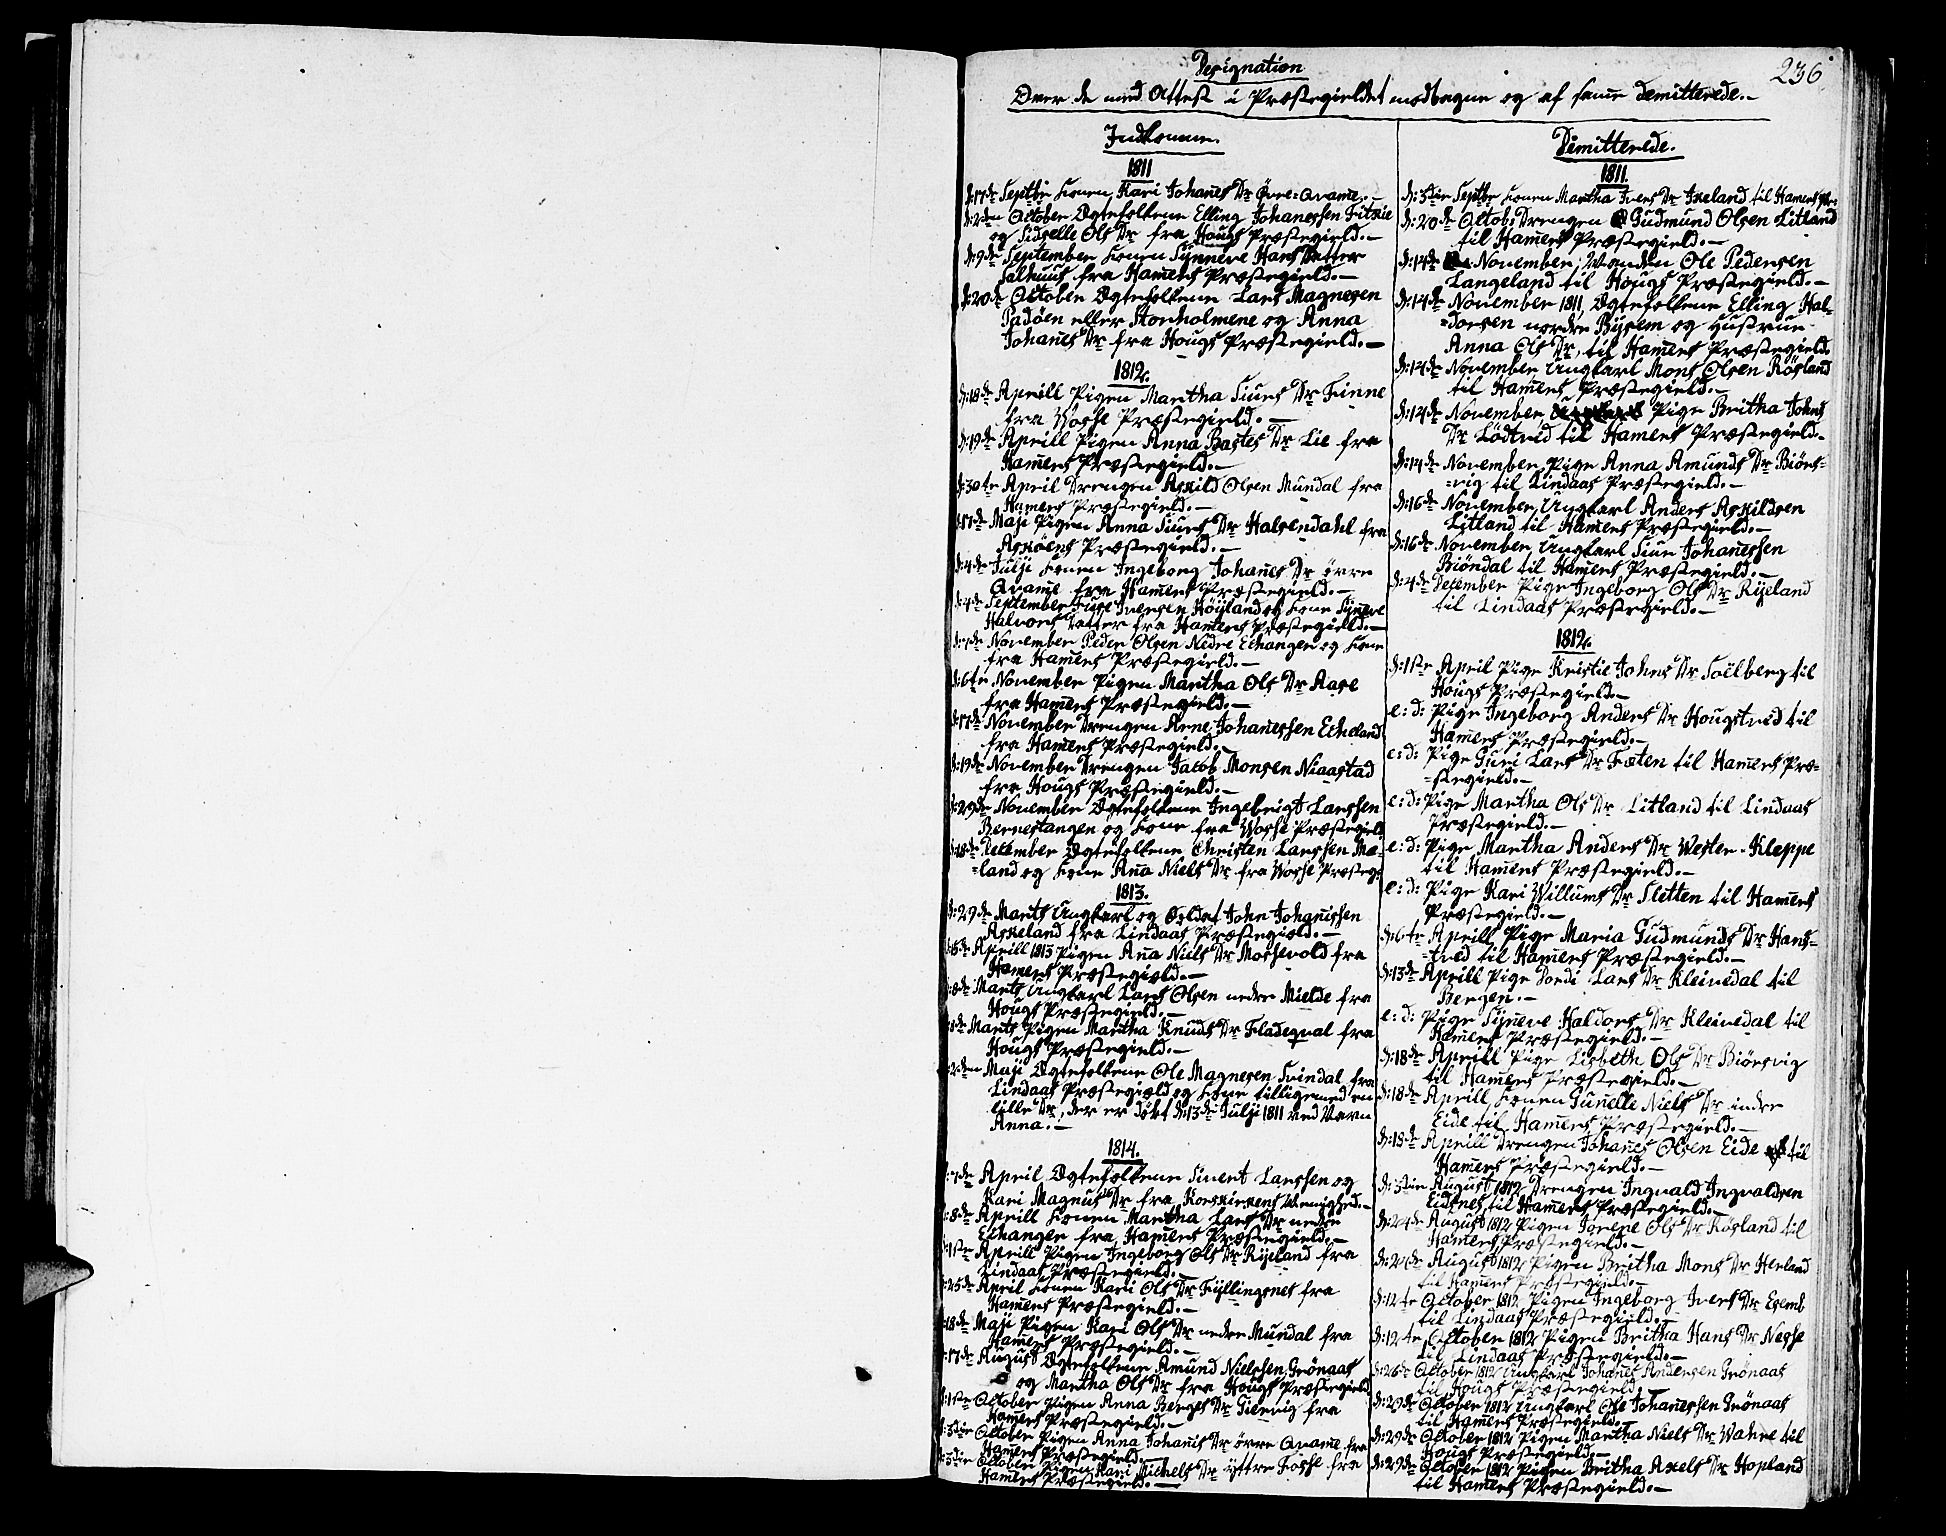 236
Designation
Over de med Attest i Præstegieldet modtagne og af samme demitterede.-
Indkomne.
1811
d:17de Septbr Konen Kari Johanes Dr Øvre=Qvame.-
d:2den October Ægtefolkene Elling Johanessen Fitskie
og Sidselle Ols Dr fra Hougs Præstegield.-
d:9de September Konen Synneve Hans Datter
Salhuus fra Hamers Præstegield.-
d:20de October Ægtefolkene Lars Magnesen
Padøen eller Storholmene og Anna
Johanes Dr fra Hougs Præstegield.-
1812.
d:18de Aprill Pigen Martha Siurs Dr Finne
fra Vosse Præstegield.-
d:19de Aprill Pigen Anna Bastes Dr Lie fra
Hamers Præstegield.-
d:30te April Drengen Askild Olsen Mundal fra
Hamers Præstegield.-
d:17de Maji Pigen Anna Siurs Dr Halsendahl fra
Askøens Præstegield.-
d:4de Julji Konen Ingeborg Johanes Dr øvre
Qvame fra Hamers Præstegield.-
d:4de September Ture Iversen Höyland og Kone Synneve
Halvors Datter fra Hamers Præstegield.-
d:7de November Peder Olsen Nedre Echangen og Kone
fra Hamers Præstegield.-
d:6te November Pigen Martha Ols Dr Aase
fra Hamers Præstegield.-
d:17de November Drengen Arne Johanessen Echeland
fra Hamers Præstegield.
d:19de November Drengen Jacob Monsen Niaastad
fra Hougs Præstegield.-
d:29de November Ægtefolkene Ingebrigt Larssen
Bernestangen og Kone fra Vosse Præstegield
d:18de December Ægtefolkene Christen Larssen Mæ-
=land og Kone Ana Niels Dr fra Vosse Præsteg:
1813.
d:29de Marts Ungkarl og Soldat John Johanissen
Askeland fra Lindaas Præstegield.-
d:5de Aprill 1813 Pigen Ana Niels Dr Mossevold fra
Hamers Præstegield.-
d:8de Marts Ungkarl Lars Olsen nedre Mielde fra
Hougs Præstegield.-
d:8de Marts Pigen Martha Knuds Dr Fladeqval fra
Hougs Præstegield.-
d:2den Maji Ægtefolkene Ole Magnesen Svindal fra
Lindaas Præstegield og Kone tilligemed en
lille Dr, der er døbt d:13de Julji 1811 ved Navn
Anna.-
1814.
d:7de April Ægtefolkene Sivert Larssen og
Kari Magnus Dr fra Korskirkens Menighed.-
d:8de Aprill Konen Martha Lars Dr nedre
Echangen fra Hamers Præstegield.-
d:1ste Aprill Pigen Ingeborg Ols Dr Ryeland fra
Lindaas Præstegield.-
d:25de April Konen Kari Ols Dr Fyllingsnes fra
Hamers Præstegield.-
d:18de Maji Pigen Kari Ols Dr nedre Mundal fra
Hamers Præstegield.-
d:17de August Ægtefolkene Amund Nielssen Grönaas
og Martha Ols Dr fra Hougs Præstegield
d:1ste October Pigen Anna Berges Dr Giervig fra
Hamers Præstegield.-
d:3die October Pigen Anna Johanis Dr øvre Qvame fra
Hamers Præstegield.-
d:3die October Pigen Kari Michels Dr yttre Fosse fra
Hamers Præstegield.-
Demitterede.
1811.
d:3die Septbr Konen Martha Ivers Dr Ixeland til Hamers Pr:
d:20de Octob: Drengen Gudmund Olsen Litland
til Hamers Præstegield.-
d:14de November, Manden Ole Pedersen
Langeland til Hougs Præstegield.-
d:14de November 1811, Ægtefolkene Elling Hal-
=dorsen nordre Bysem og Hustrue
Anna Ols Dr, til Hamers Præstegield
d:14de November Ungkarl Mons Olsen Rösland
til Hamers Præstegield.-
d:14de November Pige Britha Johns
Dr Lödtvid til Hamers Præstegield.-
d:14de November Pige Anna Amunds Dr Biörs-
=vig til Lindaas Præstegield.-
d:16de November Ungkarl Anders Askildsen
Litland til Hamers Præstegield.-
d:16de November Ungkarl Siur Johanessen
Biöndal til Hamers Præstegield.-
d:4de December Pige Ingeborg Ols Dr Ryeland
til Lindaas Præstegield.-
1812.
d:1ste April Pige Kristie Johns Dr Soelberg til
Hougs Præstegield.-
e:d: Pige Ingeborg Anders Dr Hougstved til
Hamers Præstegield.-
e:d: Pige Guri Lars Dr Fæten til Hamers Præ-
=stegield.-
e:d: Pige Martha Ols Dr Litland til Lindaas
Præstegield.-
e:d: Pige Martha Anders Dr Wester-Kleppe
til Hamers Præstegield.-
e:d: Pige Kari Willums Dr Sletten til Hamers
Præstegield.-
d:6te Aprill Pige Maria Gudmunds Dr Hans-
=tved til Hamers Præstegield.-
d:13de Aprill Pige Sordi Lars Dr Kleivedal til
Bergen.-
e:d: Pige Syneve Haldors Dr Kleivedal til
Hamers Præstegield.-
d:18de Aprill Pige Lisbeth Ols Dr Biörsvig
til Hamers Præstegield.-
d:18de Aprill Konen Gunelle Niels Dr indre
Eide til Hamers Præstegield.-
d:18de Aprill Drengen Johanes Olsen Eide til
Hamers Præstegield.-
d:3die August 1812 Drengen Ingvald Ingvaldsen
Eidsnes til Hamers Præstegield.-
d:24de August 1812 Pigen Sorene Ols Dr Rösland til
Hamers Præstegield.-
d:24de August 1812 Pigen Britha Mons Dr Herland
til Hamers Præstegield.-
d:12te October 1812 Pigen Ingeborg Ivers Dr Esemb
til Lindaas Præstegield.-
d:12te October 1812 Pigen Britha Hans Dr Nesse
til Lindaas Præstegield.-
d:26de October 1812 Ungkarl Johanes Andersen Grönaas
til Hougs Præstegield.-
d:29de October 1812 Ungkarl Ole Johanessen Grönaas
til Hamers Præstegield.-
d:29de October 1812 Pigen Martha Niels Dr Vahre til
Hougs Præstegield.-
d:29de October 1812 Pigen Britha Axels Dr Hopland
til Hamers Præstegield.-